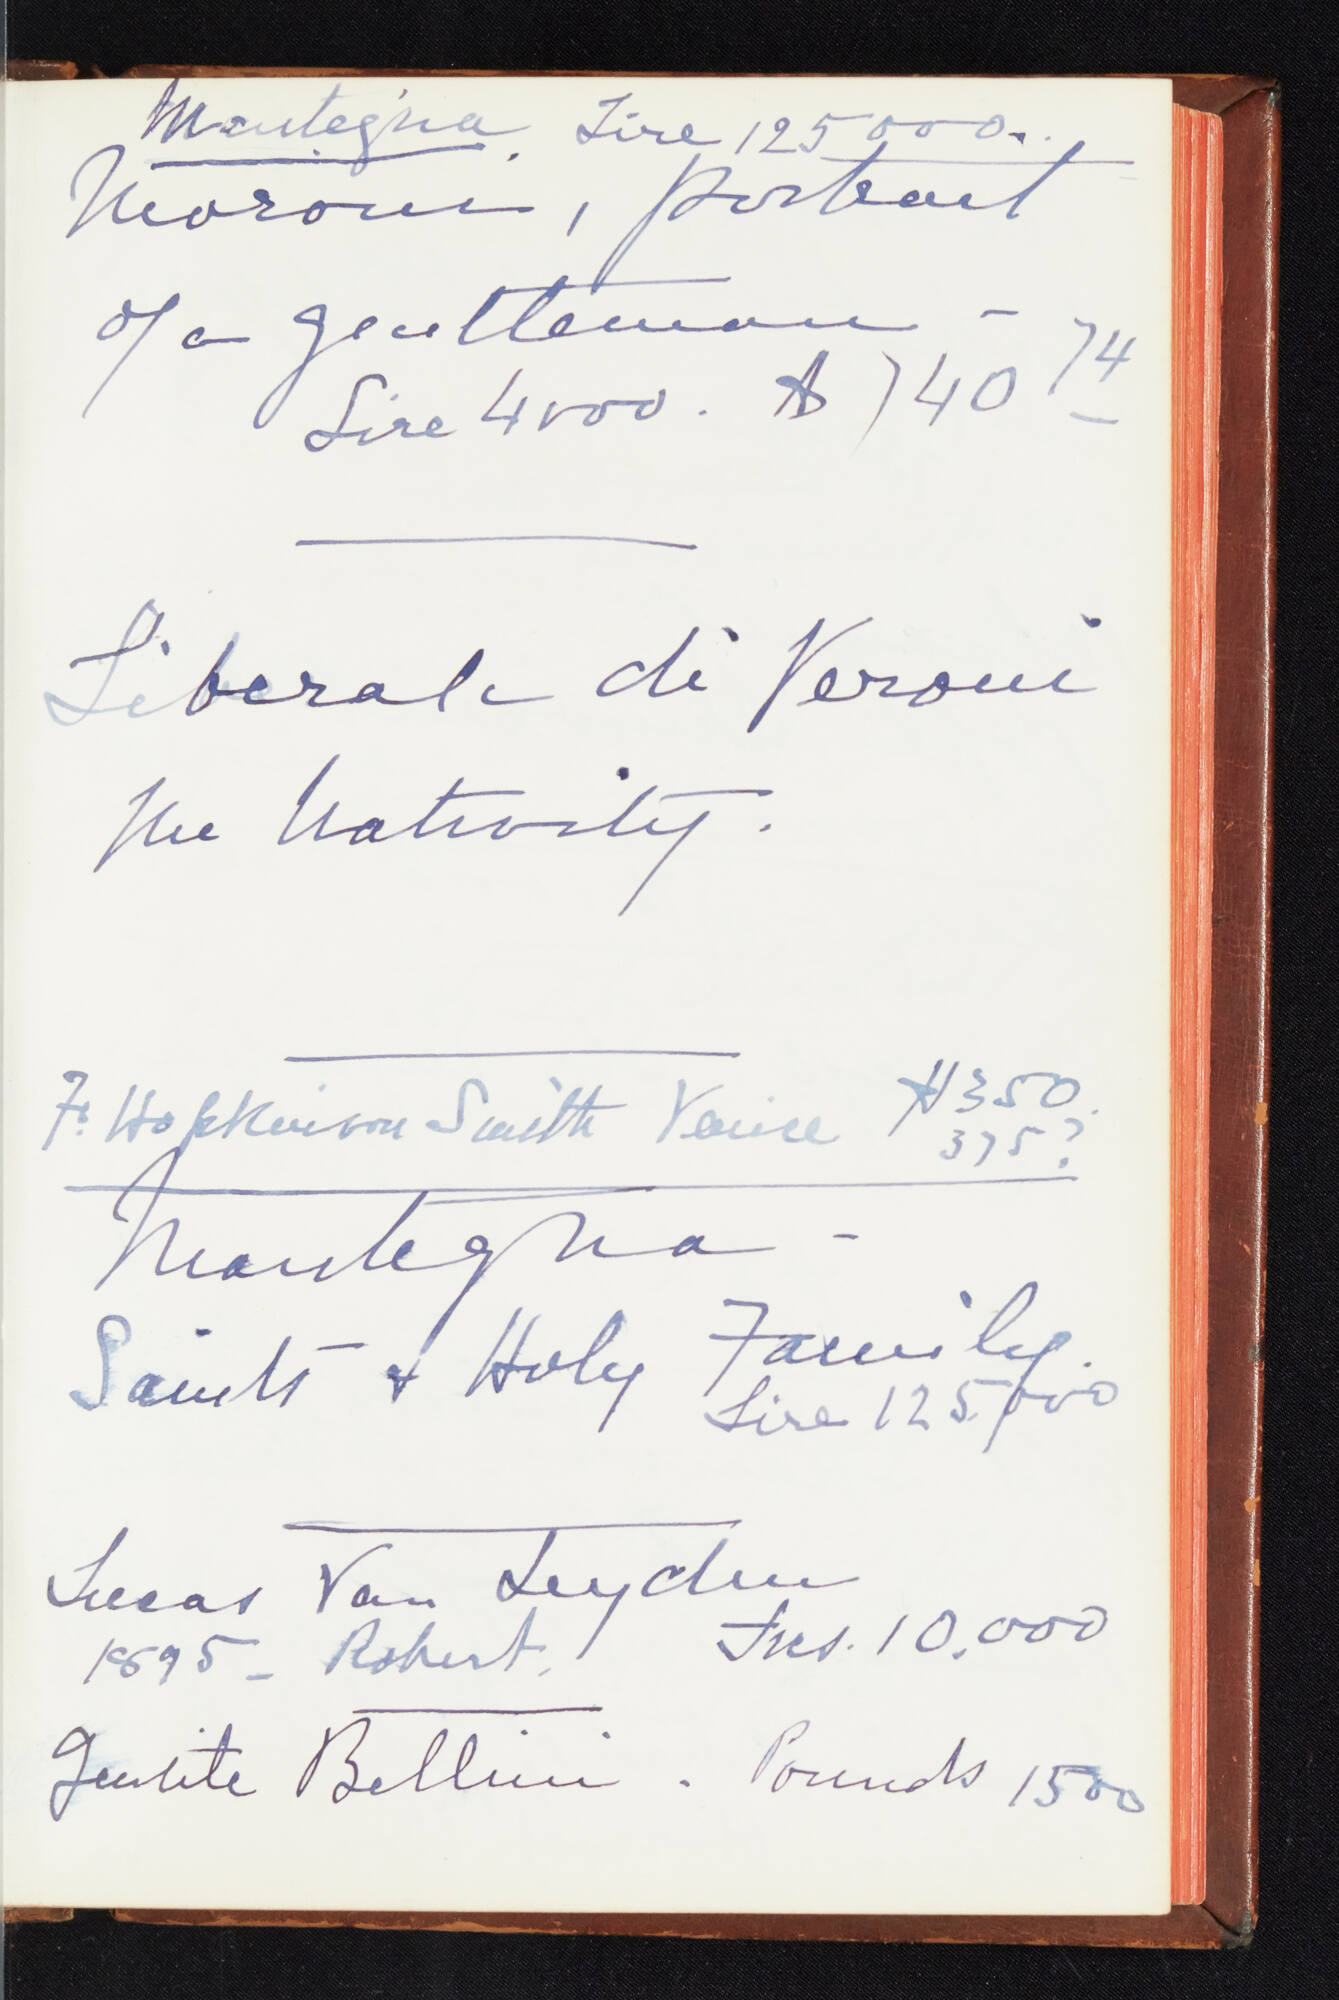 Mantegna. Lire 125000.
Moroni, portrait
of a gentleman -
Lire 4000. $ 740 74
Liberale di Veroni
The Nativity.
F. Hopkinson Smith Venice $350.
375?
Mantegna -
Saints & Holy Family.
Lire 125,000
Lucas Van Leyden
1895 - Robert. Frcs. 10.000
Gentile Bellini. Pounds 1500